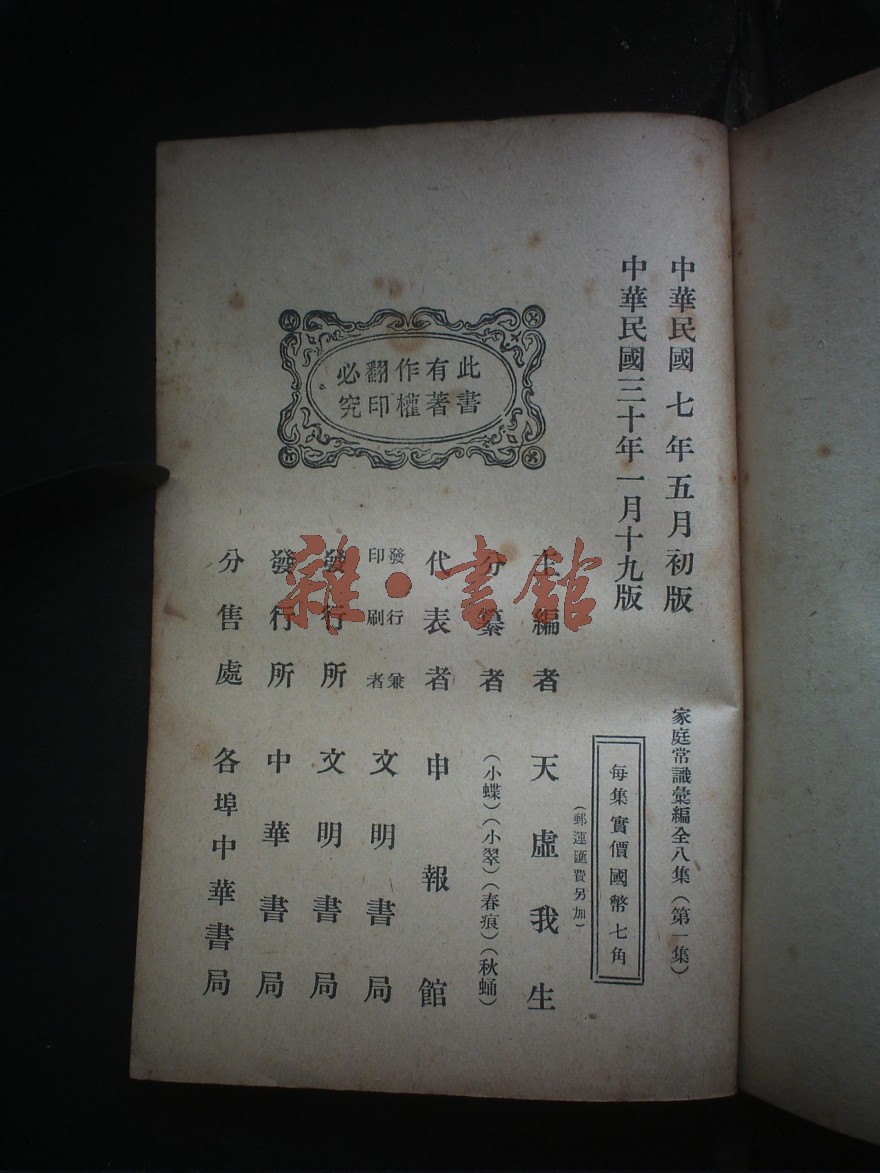 中華民國 七年五月初版
中華民國三十年一月十九版
家庭常識彙編全八集（第一集）
每集實價國幣七角
（郵運匯費另加）
主編者 天虛我生
分纂者 （小蝶）（小翠）（春痕）（秋蛹）
代表者 申報館
發行兼
印刷者 文明書局
發行所 文明書局
發行所 中華書局
分售處 各埠中華書局
此書
有著
作權
翻印
必究
雜·書館